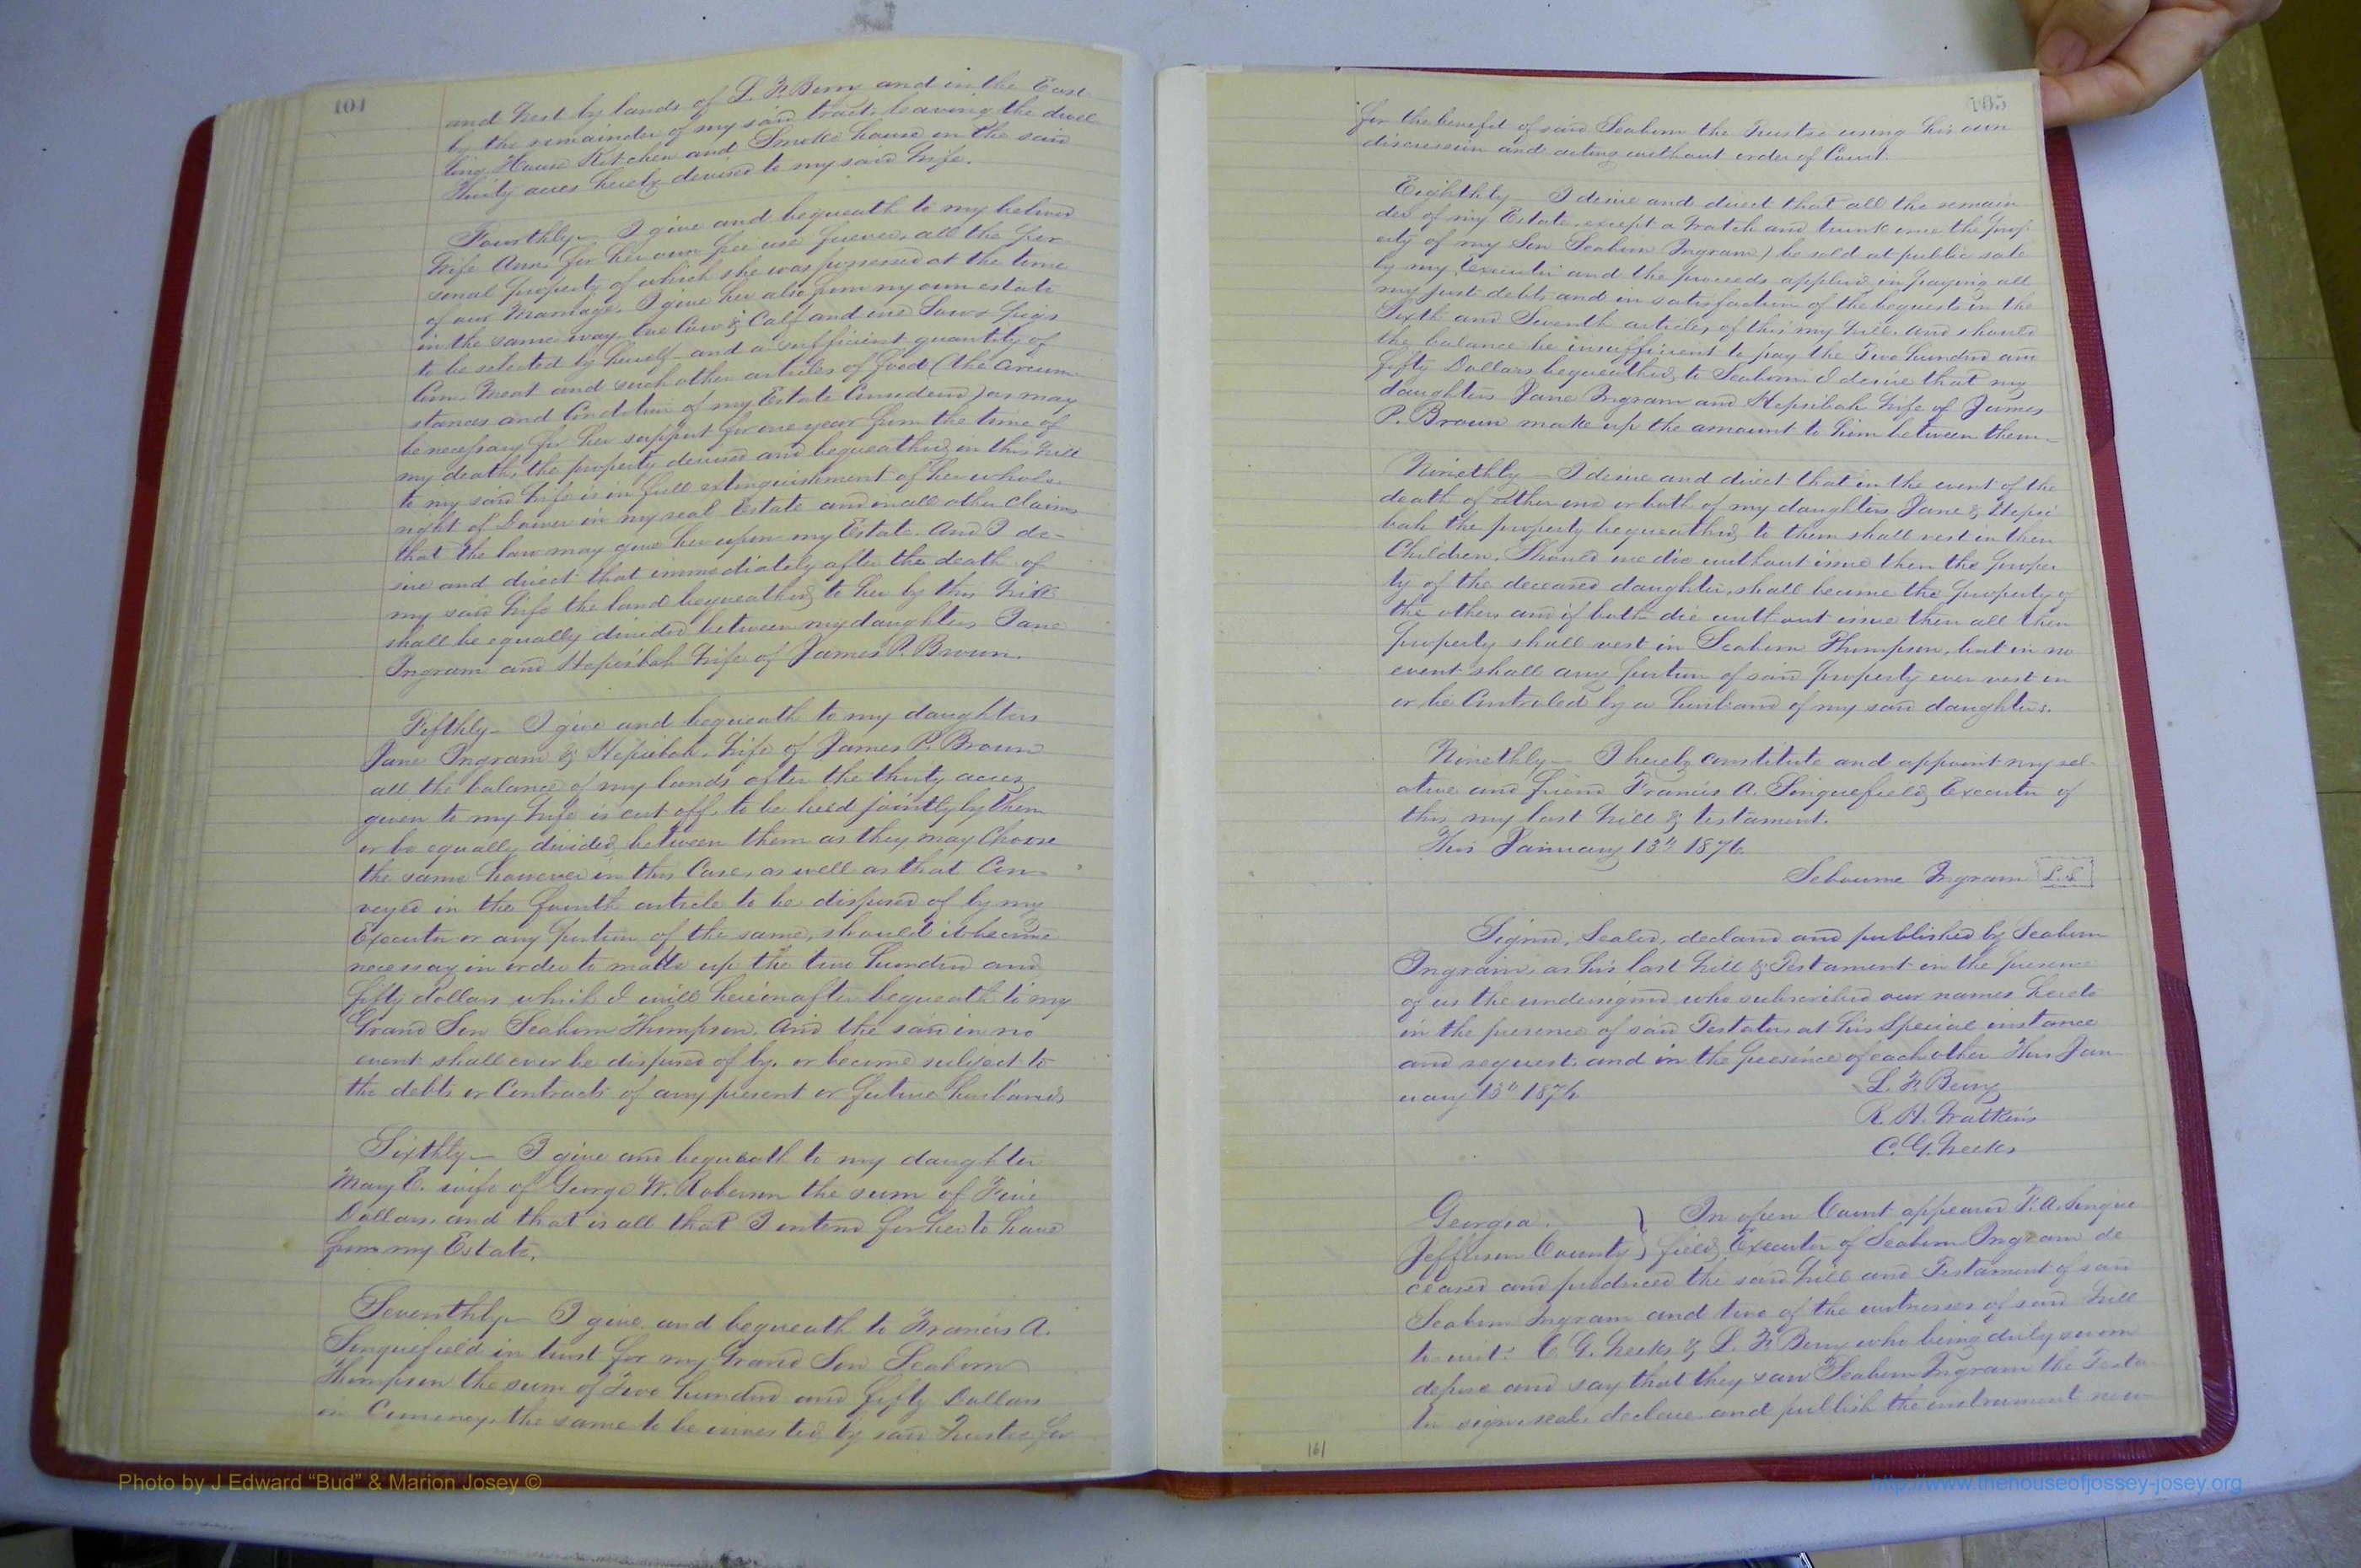 104
and West by lands of L. F. Berry and in the East
by the remainder of my said tract, leaving the dwel
ling House Kitchen and Smoke house on the said
thirty acres hereby devised to my said Wife.
Fourthly— I give and bequeath to my beloved
Wife Ann, for her own free use forever, all the per
sonal property of which she was possessed at the time
of our Marriage, I give her also from my own estate
in the same way, one Cow & Calf and one Sow & pigs
to be selected by herself— and a sufficient quantity of
Corn, Meat and such other articles of food (the circum
stances and Condition of my Estate Considered) as may
be necessary for her support for one year from the time of
my death, the property devised and bequeathed in this Will
to my said Wife is in full extinguishment of her whole
right of Dower in my real Estate and in all other Claims
that the law may give her upon my Estate. And I de-
sire and direct that immediately after the death of
my said Wife the land bequeathed to her by this Will
shall be equally divided between my daughters Jane
Ingram and Hepsibah Wife of James P. Brown.
Fifthly— I give and bequeath to my daughters
Jane Ingram & Hepsibah, Wife of James P. Brown
all the balance of my lands after the thirty acres
given to my Wife is cut off, to be held jointly by them
or be equally divided between them as they may Choose
the same however in this Case, as well as that Con-
veyed in the fourth article to be disposed of by my
Executor or any portion of the same, should it become
necessay in order to make up the two hundred and
fifty dollars which I will hereinafter bequeath to my
Grand Son Seaborn Thompson. And the said in no
event shall ever be disposed of by, or become subject to
the debts or Contracts of any present or future husbands
Sixthly— I give and bequeath to my daughter
Mary E. wife of George W. Roberson the sum of Five
Dollars, and that is all that I intend for her to have
from my Estate.
Seventhly— I give and bequeath to Francis A.
Sinquefield in trust for my Grand Son Seaborn
Thompson the sum of Two hundred and fifty Dollars
in Currency, the same to be invested by said Trustee for
105
for the benefit of said Seaborn the Trustee using his own
discression and acting without order of Court.
Eighthly— I desire and direct that all the remain
der of my Estate, except a Watch and trunk (one the prop
erty of my Son Seaborn Ingram) be sold at public sale
by my Executor and the proceeds applied in paying all
my just debts and in satisfaction of the bequests in the
Sixth and Seventh articles of this my Will. And should
the balance be insufficient to pay the Two hundred and
fifty Dollars bequeathed to Seaborn I desire that my
daughters Jane Ingram and Hepsibah Wife of James
P. Brown make up the amount to him between them—
Ninethly— I desire and direct that in the event of the
death of either one or both of my daughters Jane & Hepsi
bah the property bequeathed to them shall vest in their
Children. Should one die without issue then the proper
ty of the deceased daughter, shall become the property of
the others and if both die without issue then all their
property shall vest in Seaborn Thompson, but in no
event shall any portion of said property ever vest in
or be Controled by a husband of my said daughters.
Ninethly— I hereby Constitute and appoint my rel-
ative and friend Francis A. Sinquefield, Executor of
this my last Will & testament.
This January 13th 1876
Sebourne Ingram L.S.
Signed, Sealed, declared and published by Seaborn
Ingram, as his last Will & Testament in the presence
of us the undersigned who subscribed our names hereto
in the presence of said Testator at his Special instance
and request, and in the presence of each other This Jan
uary 13th 1876
L. F. Berry
R. A. Watkins
C. G. Weeks
Georgia. } In open Court appeared F. A. Sinque
Jefferson County } field, Executor of Seaborn Ingram de
ceased and produced the said Will and Testament of said
Seaborn Ingram and two of the witnesses of said Will
to wit: C. G. Weeks & L. F. Berry who being duly sworn
depose and say that they saw Seaborn Ingram the Testa
tor sign, seal, declare and publish the instrument now
161
Photo by J Edward “Bud” & Marion Josey ©
http://www.thehouseofjossey-josey.org